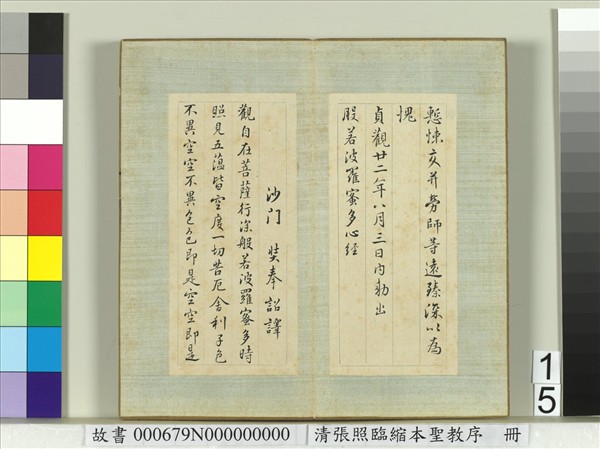 慙悚交并勞師等遠臻深以為
愧
貞觀廿二年八月三日內勅出
般若波羅蜜多心經
沙門 奘奉 詔譯
觀自在菩薩行深般若波羅蜜多時
照見五蘊皆空度一切苦厄舍利子色
不異空空不異色色即是空空即是
15
故書 000679N000000000 清張照臨縮本聖教序 冊